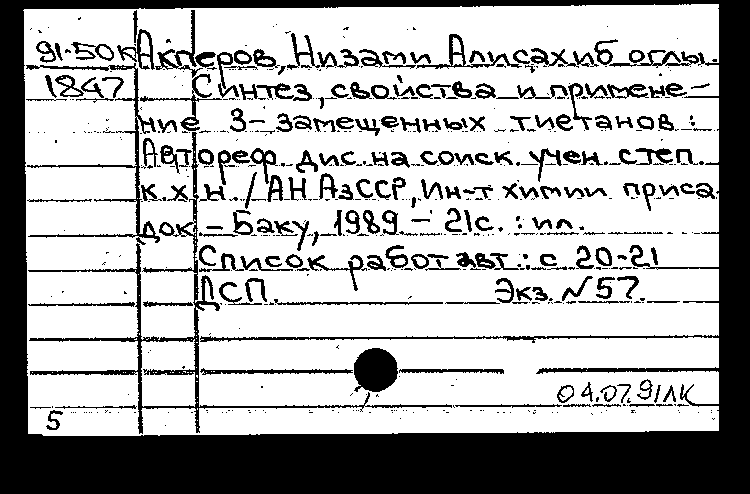 91-50к Акперов, Низами Алисахиб оглы.
1847 Синтез, свойства и примене-
ние 3-замещенных тиетанов:
Автореф. дис. на соиск. учен. степ.
к.х.н. / АН АзССР, Ин-т химии приса
док. - Баку, 1989 - 21с. : ил.
Список работ авт.: с 20-21
ДСП. Экз. N57.
04.07.91ЛК
5